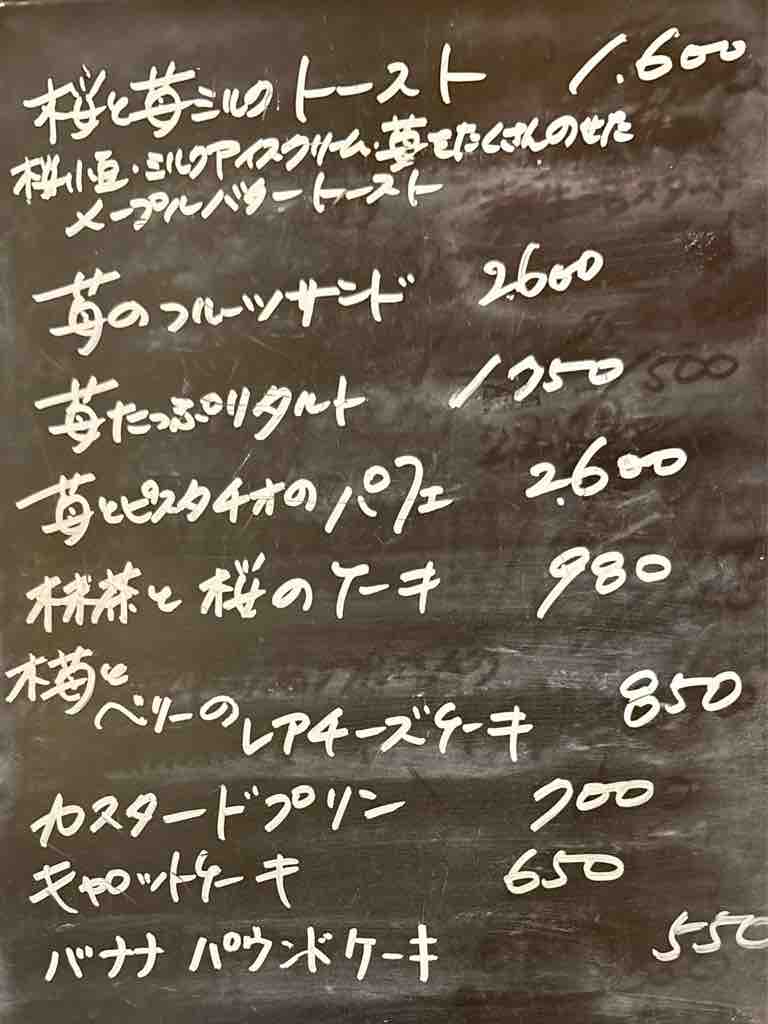 桜と苺ミルクトースト 1.600
桜小豆・ミルクアイスクリーム・苺をたくさんのせた
メープルバタートースト
苺のフルーツサンド 2.600
苺たっぷりタルト 1750
苺とピスタチオのパフェ 2.600
抹茶と桜のケーキ 980
苺と
ベリーのレアチーズケーキ 850
カスタードプリン 700
キャロットケーキ 650
バナナパウンドケーキ 550